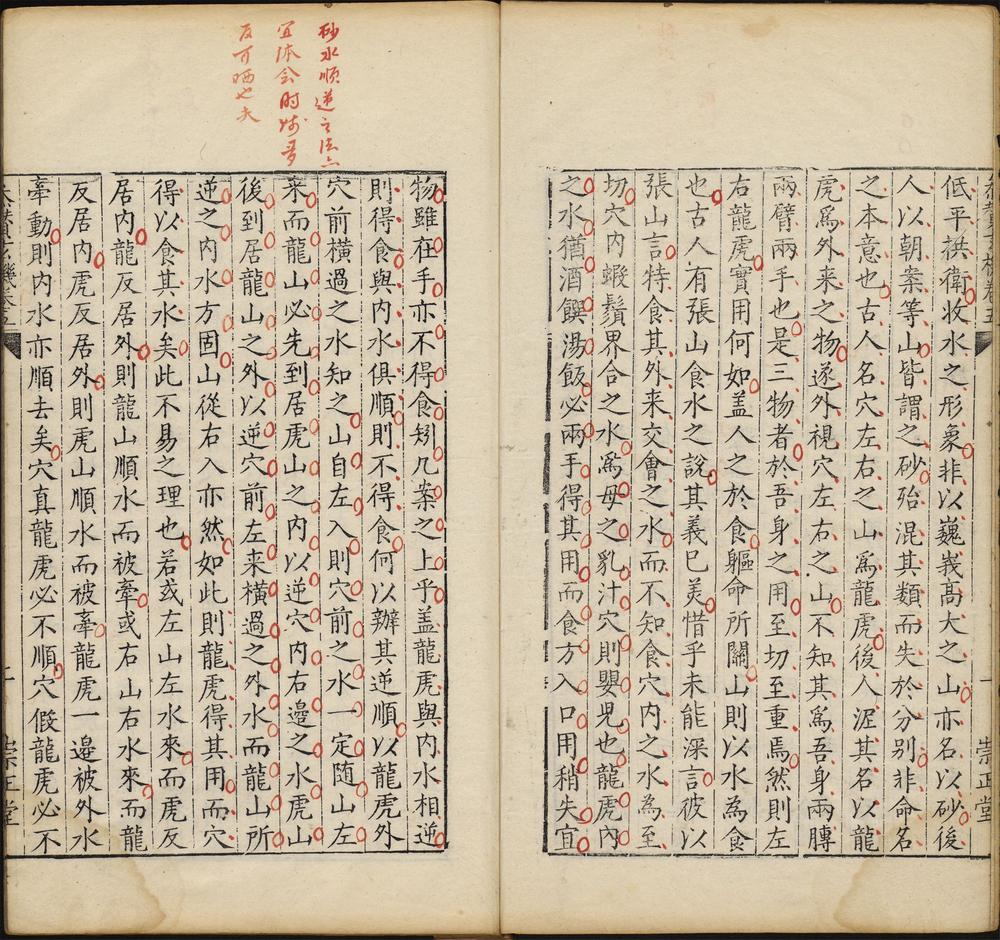 低平拱衛收水之形象非以巍峩髙大之山亦名以砂後
人以朝案等山皆謂之砂殆混其類而失於分别非命名
之本意也古人名穴左右之山爲龍虎後人涯其名以龍
虎爲外来之物遂外視穴左右之山不知其爲吾身兩膊
兩臂兩手也是三物者於吾身之用至切至重焉然則左
右龍虎實用何如盖人之於食軀命所關山則以水為食
也古人有張山食水之說其義已美惜乎未能深言彼以
張山言特食其外来交會之水而不知食穴内之水為至
切穴内蝦鬚界合之水爲母之乳汁穴則嬰児也龍虎内
之水猶酒饌湯飯必兩手得其用而食方入口用稍失宜
崇正堂
砂水順逆之法六
宜体会时
反可晒也夫
物雖在手亦不得食矧几案之上乎盖龍虎與内水相逆
則得食與内水俱順則不得食何以辦其逆順以龍虎外
穴前橫過之水知之山自左入則穴前之水一定随山左
来而龍山必先到居虎山之内以逆穴内右邉之水虎山
後到居龍山之外以逆穴前左来橫過之外水而龍山所
逆之内水方固山從右入亦然如此則龍虎得其用而穴
得以食其水矣此不易之理也若或左山左水來而虎反
居内龍反居外則龍山順水而被牽或右山右水來而龍
反居内虎反居外則虎山順水而被牽龍虎一邉被外水
牽動則内水亦順去矣穴真龍虎必不順穴假龍虎必不
崇正堂